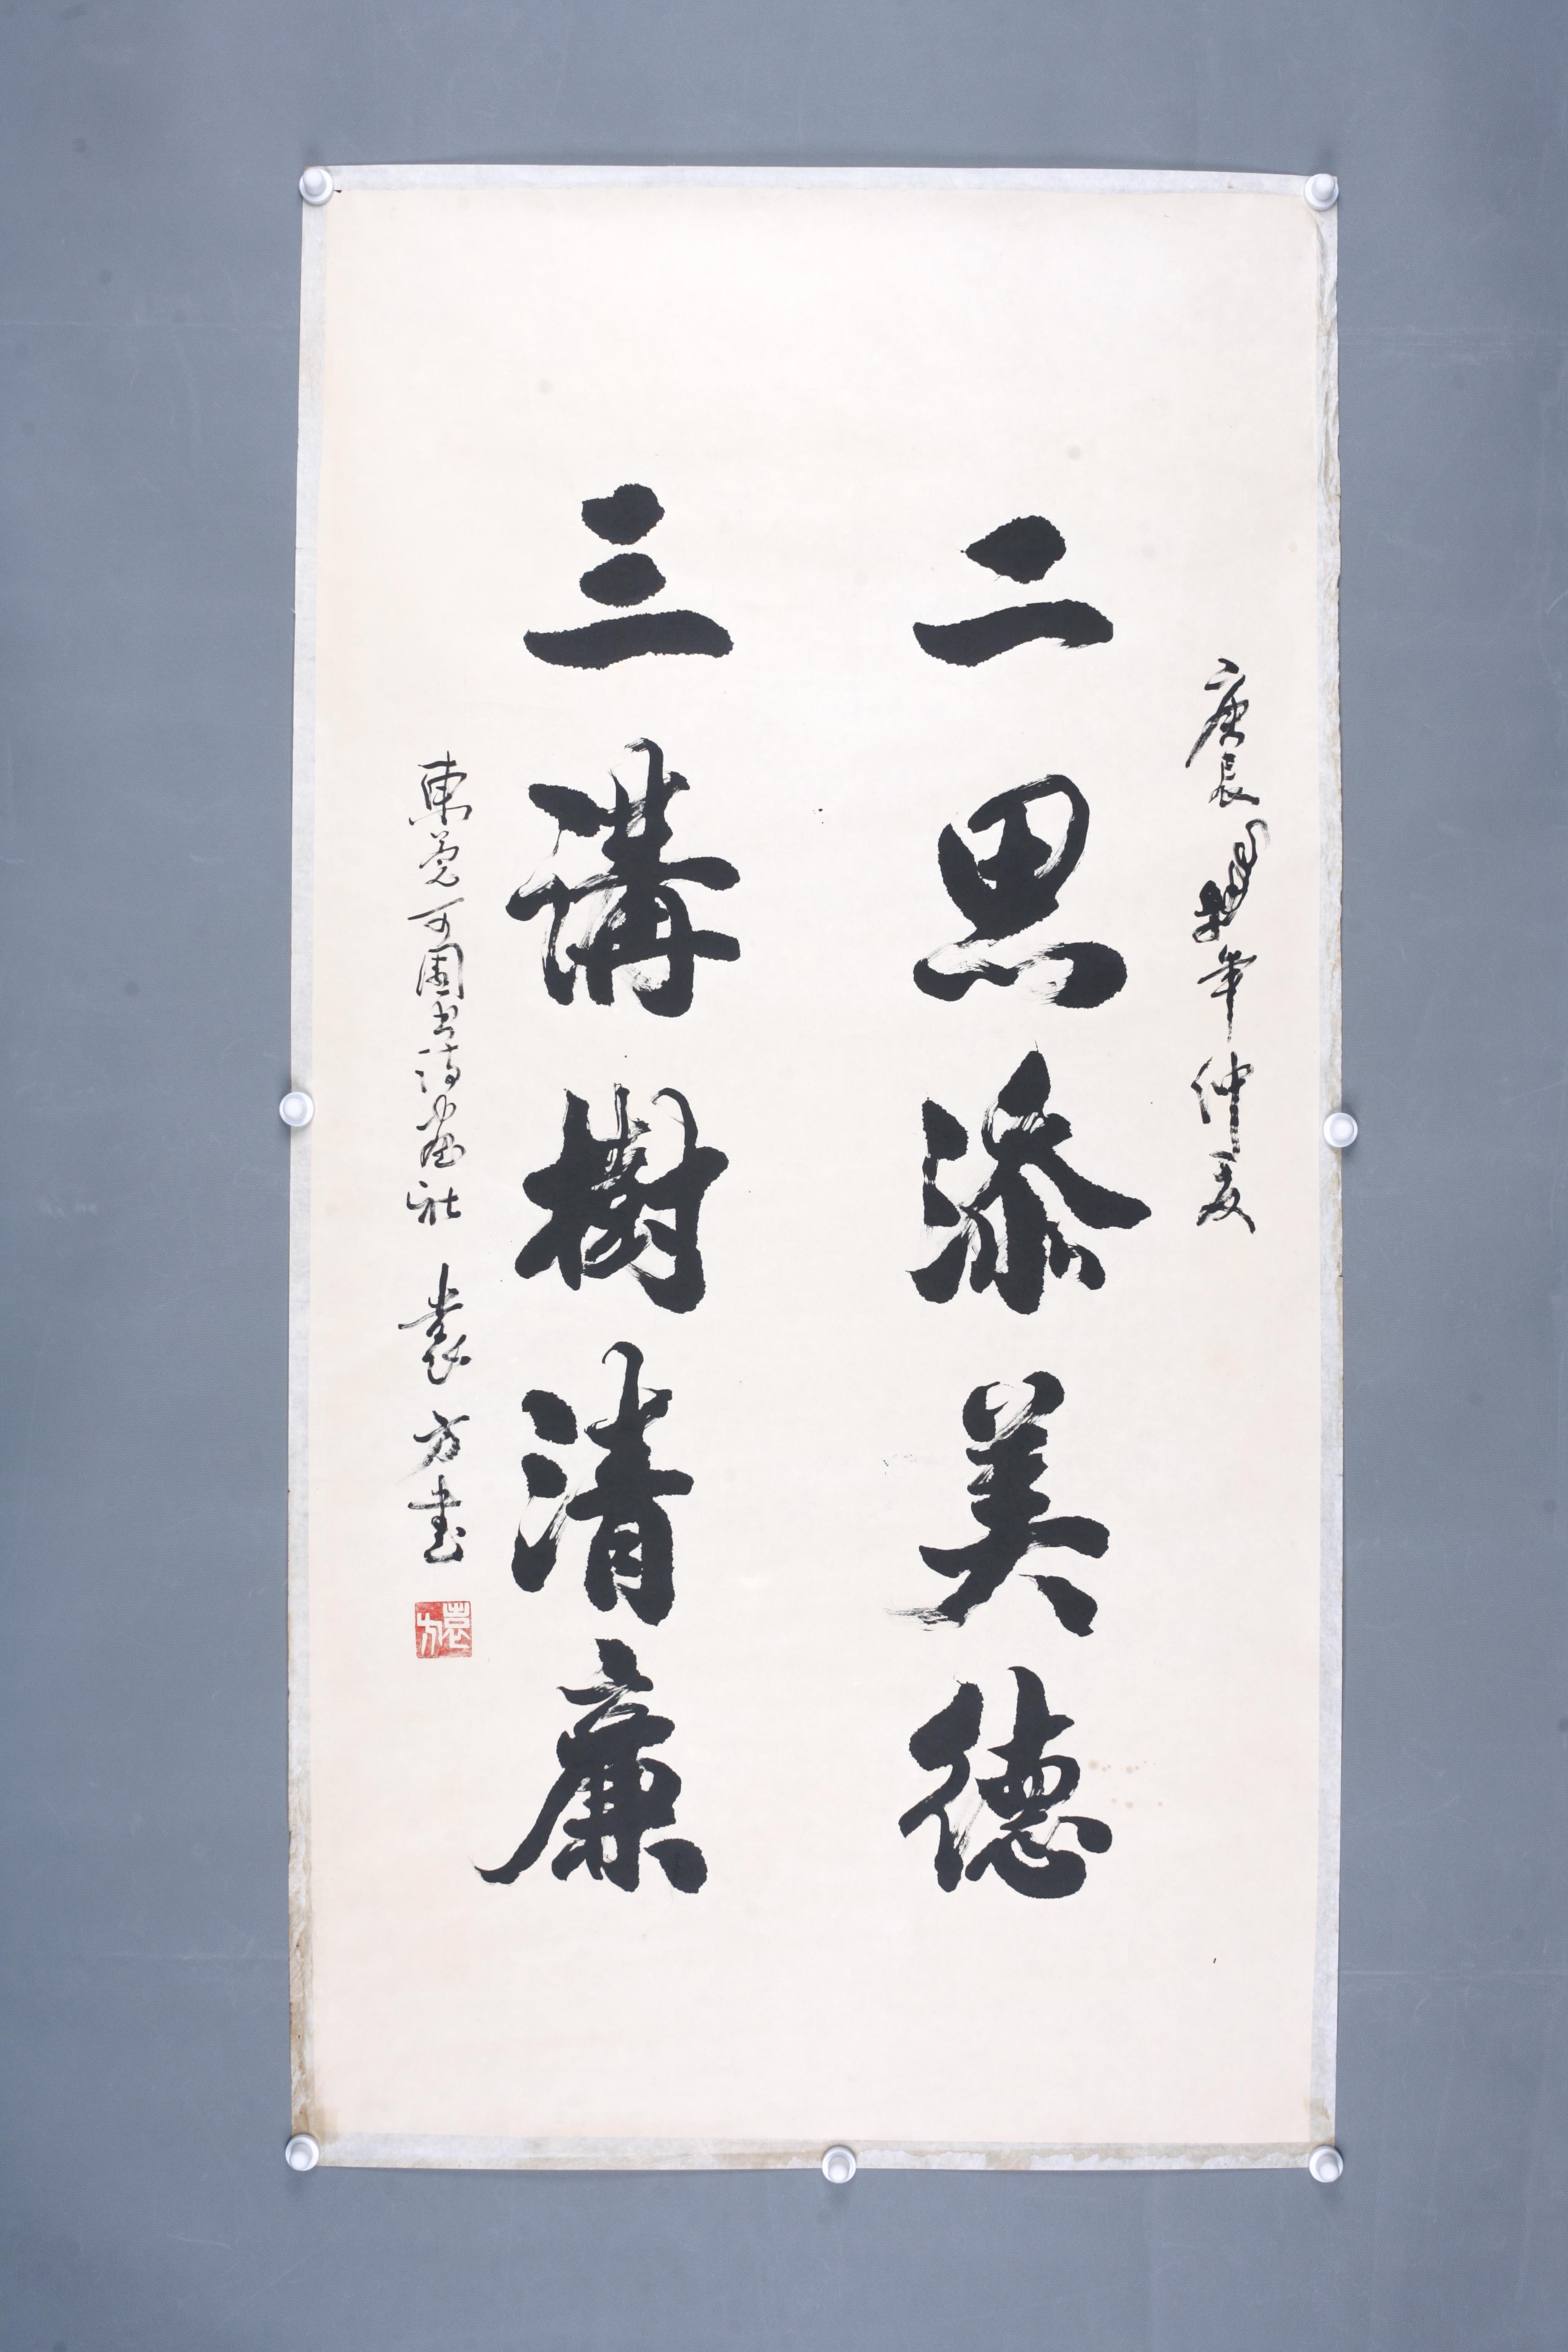 庚辰年仲夏
二思添美德
三講樹清廉
東莞可園书诗画社 袁方書
袁方